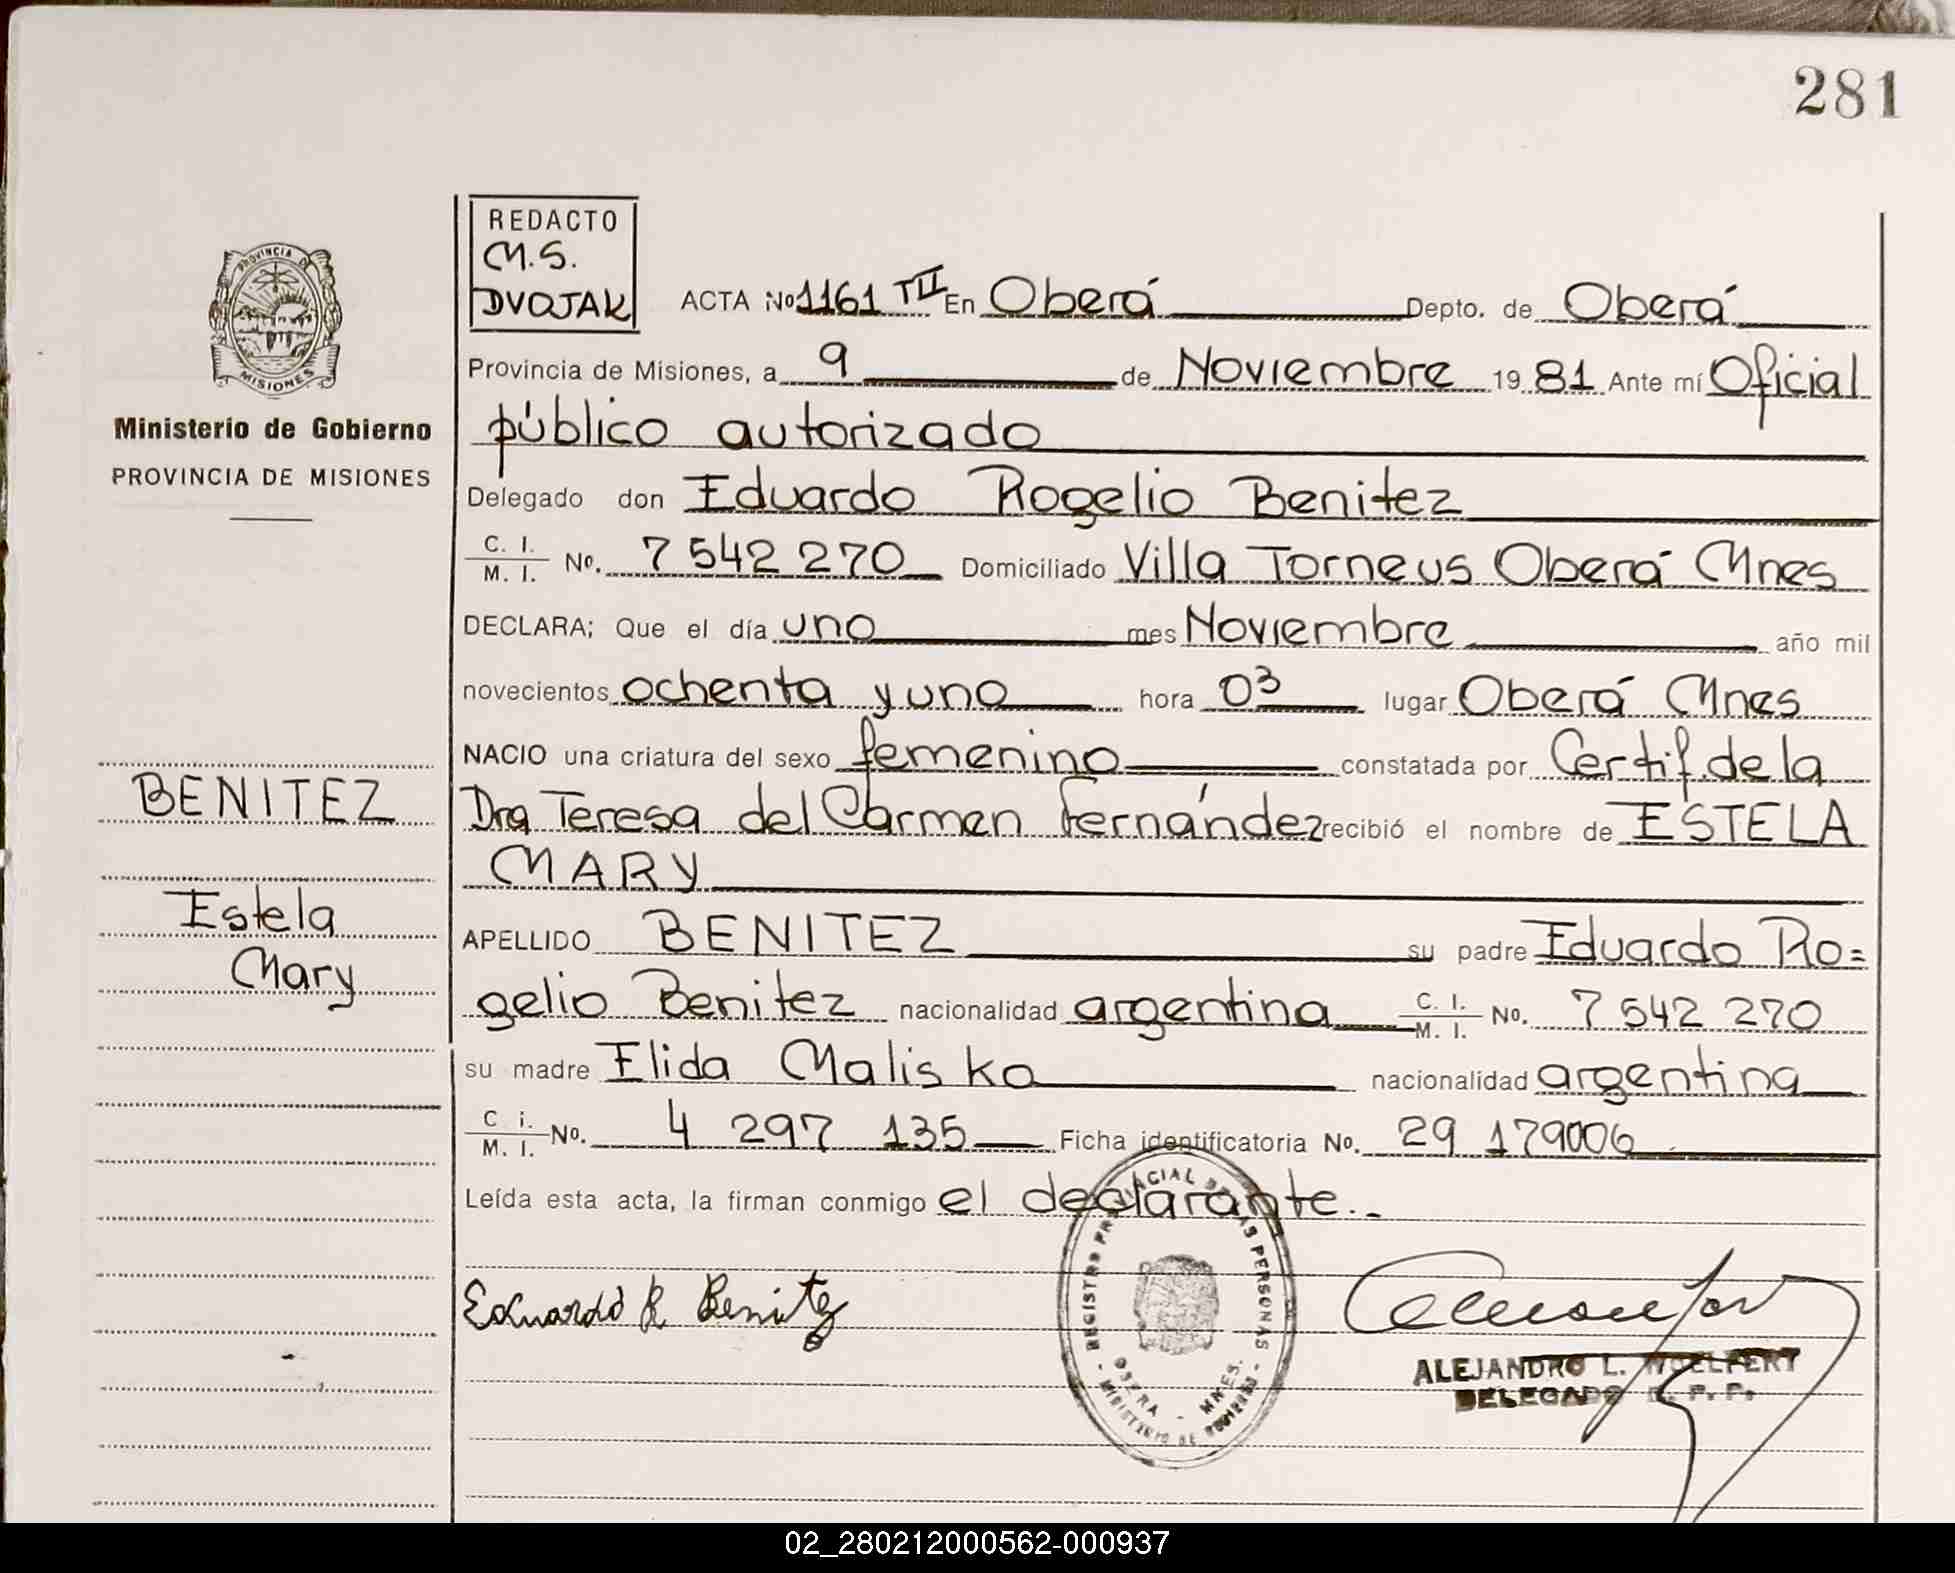 281
REDACTO
M.S.
DVOJAK
PROVINCIA DE
MISIONES
Ministerio de Gobierno
PROVINCIA DE MISIONES
BENITEZ
Estela
Mary
ACTA No 1161 TII En Oberá Depto. de Oberá
Provincia de Misiones, a 9 de Noviembre 19 81 Ante mí Oficial
público autorizado
Delegado don Eduardo Rogelio Benitez
C. I. M. I. No. 7 542 270 Domiciliado Villa Torneus Oberá Mnes
DECLARA; Que el día uno mes Noviembre año mil
novecientos ochenta y uno hora 03 lugar Oberá Mnes
NACIO una criatura del sexo femenino constatada por Certif. de la
Dra Teresa del Carmen Fernández recibió el nombre de ESTELA
MARY
APELLIDO BENITEZ su padre Eduardo Ro=
gelio Benitez nacionalidad argentina C. I. M. I. No. 7 542 270
su madre Elida Malis ka nacionalidad argentina
C. i. M. I. No. 4 297 135 Ficha identificatoria No. 29 179006
Leída esta acta, la firman conmigo el declarante.-
Eduardo R Benitez
REGISTRO PROVINCIAL DE LAS PERSONAS
OBERA - MNES.
MINISTERIO DE GOBIERNO
ALEJANDRO L. WOELFERT
DELEGADO R. P. P.
02_280212000562-000937